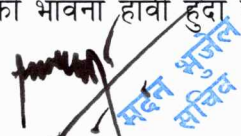 भावना हावी हुँदा
मदन भुजेल
सचिव